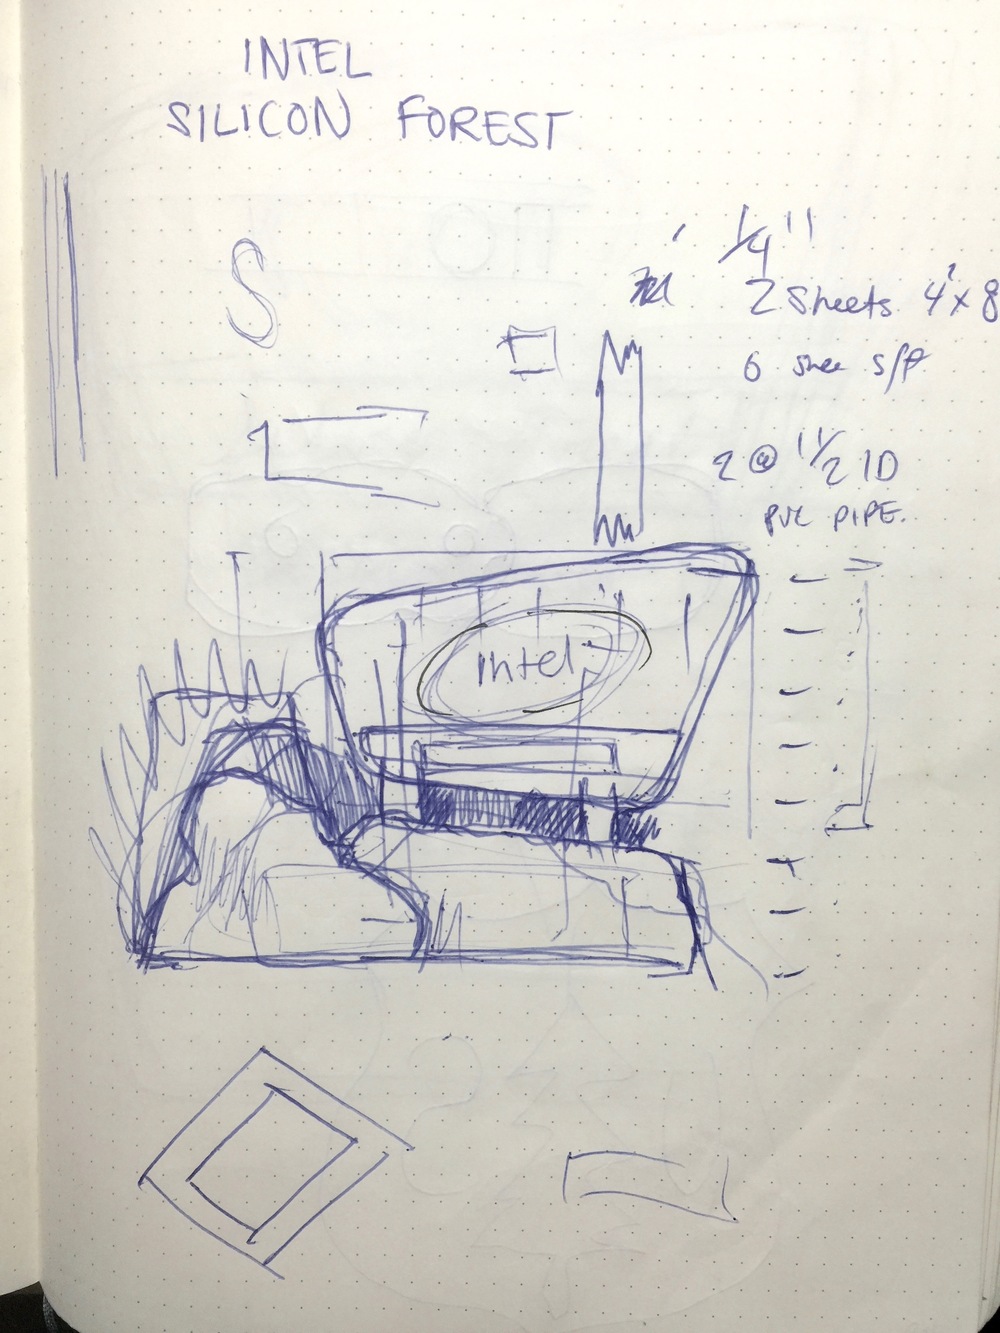 INTEL
SILICON FOREST
S
1/4"
2 Sheets 4'x8
6 shee s/f
2 @ 1 1/2 ID
PVC PIPE.
intel